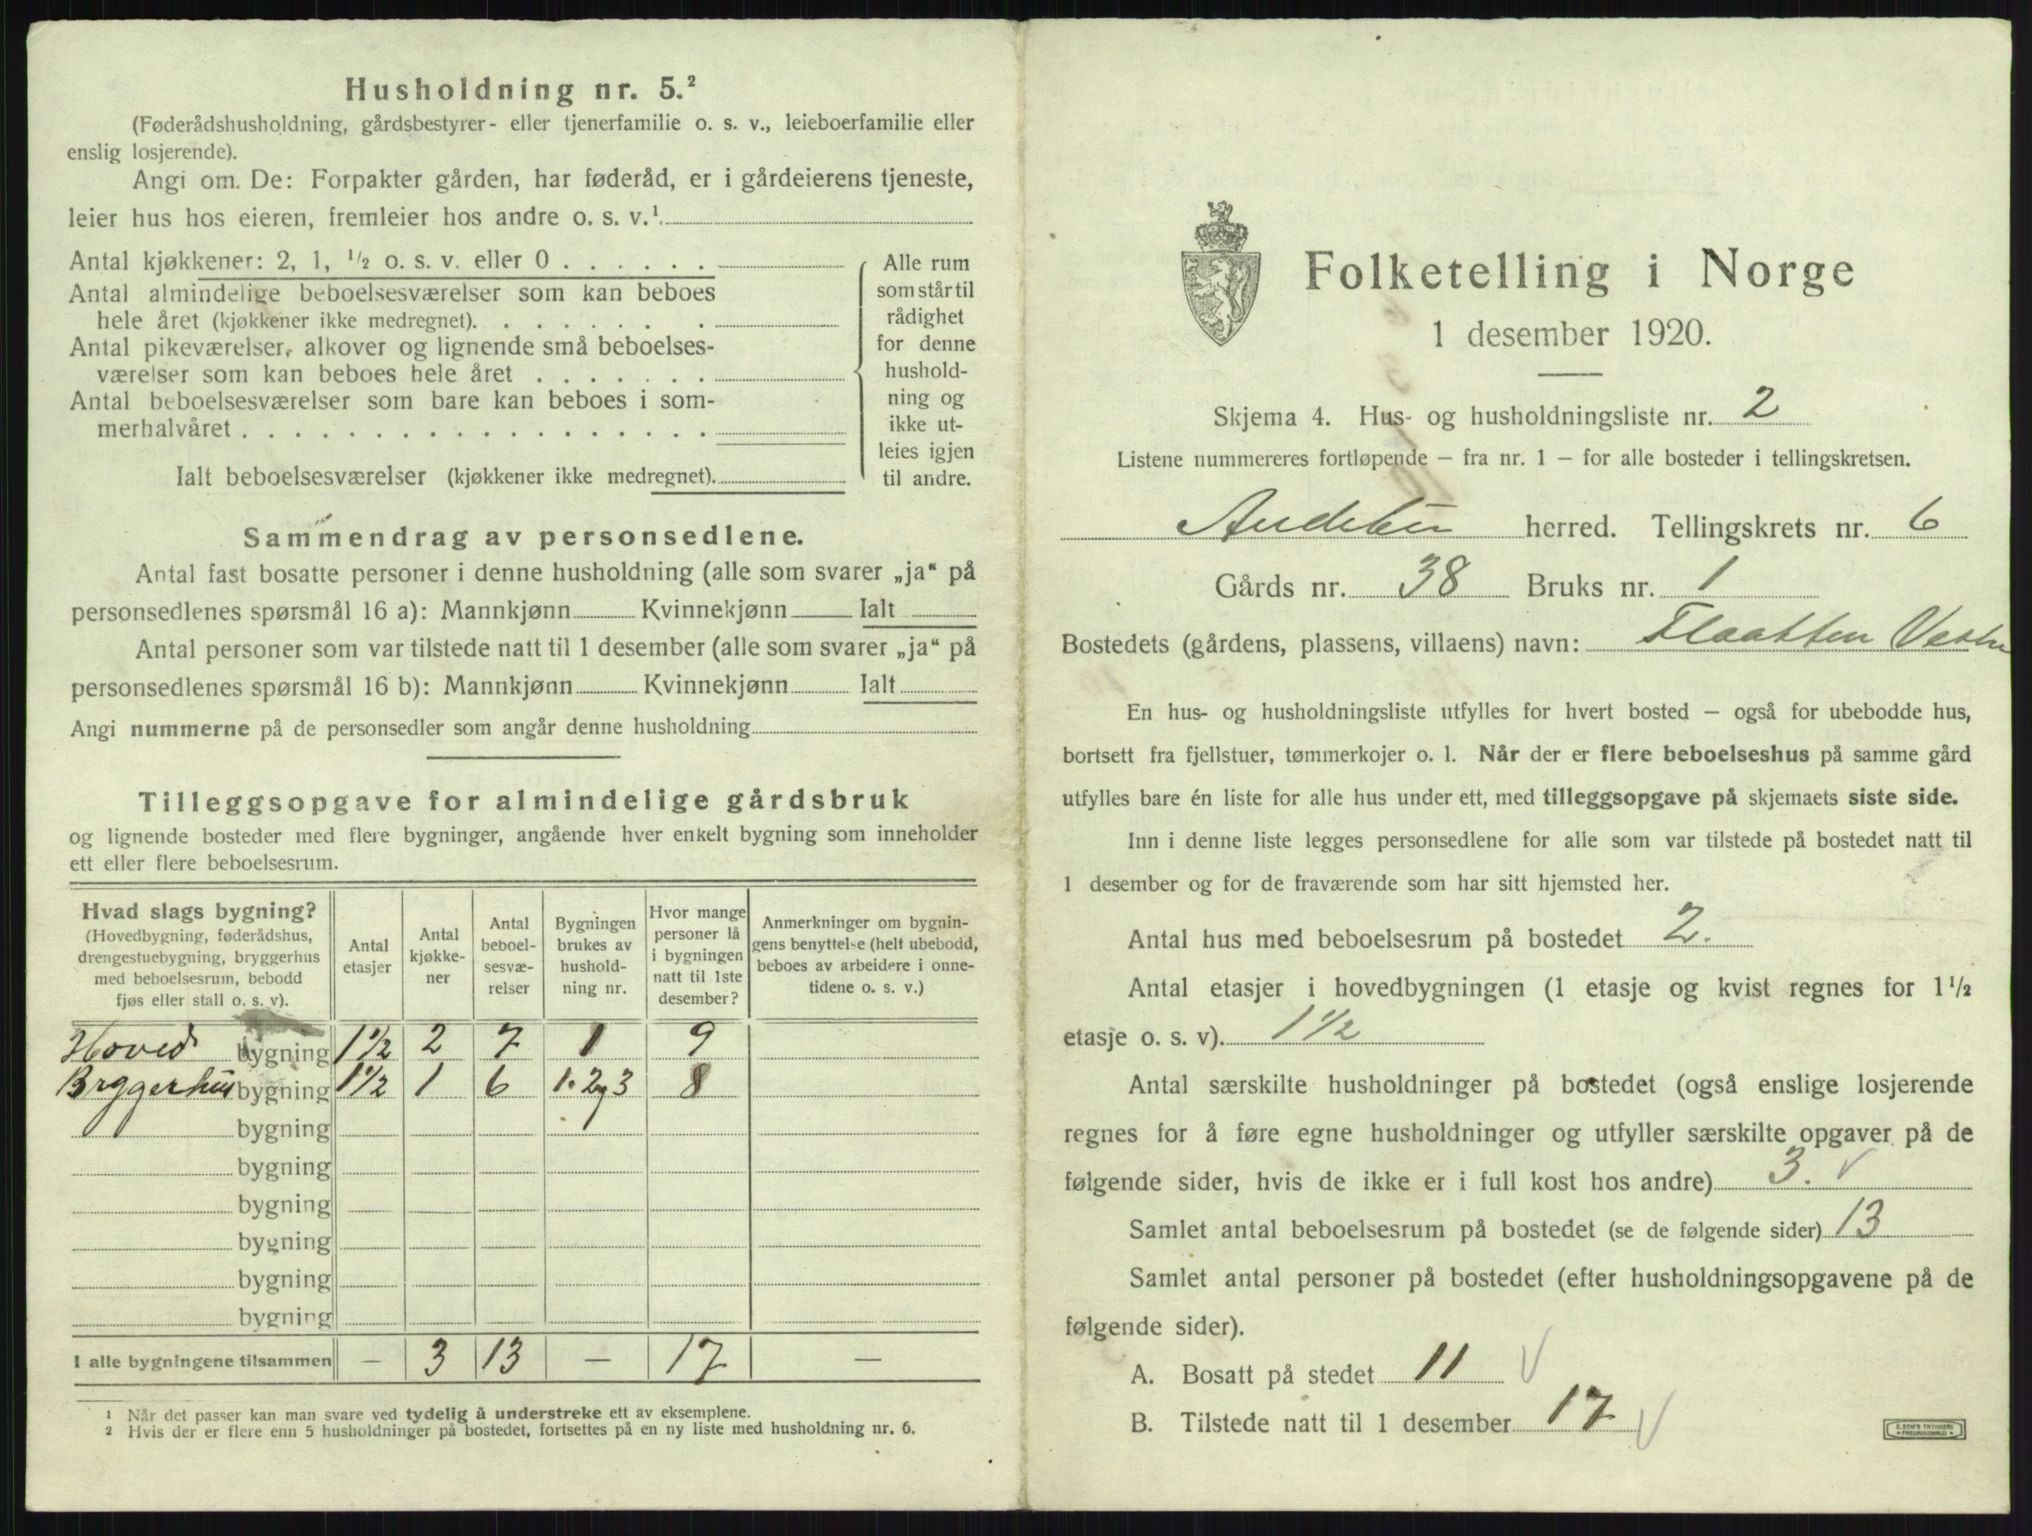 Husholdning nr. 5.²
(Føderådshusholdning, gårdsbestyrer- eller tjenerfamilie o. s. v., leieboerfamilie eller
enslig losjerende).
Angi om. De: Forpakter gården, har føderåd, er i gårdeierens tjeneste,
leier hus hos eieren, fremleier hos andre o. s. v.¹
Antal kjøkkener: 2, 1, ½ o. s. v. eller 0 . . . . . .
Antal almindelige beboelsesværelser som kan beboes
hele året (kjøkkener ikke medregnet). . . . . . . .
Antal pikeværelser, alkover og lignende små beboelses-
værelser som kan beboes hele året . . . . . . .
Antal beboelsesværelser som bare kan beboes i som-
merhalvåret . . . . . . . . . . . . . . . . . .
Ialt beboelsesværelser (kjøkkener ikke medregnet).
Alle rum
som står til
rådighet
for denne
hushold-
ning og
ikke ut-
leies igjen
til andre.
Sammendrag av personsedlene.
Antal fast bosatte personer i denne husholdning (alle som svarer „ja“ på
personsedlenes spørsmål 16 a): Mannkjønn Kvinnekjønn Ialt
Antal personer som var tilstede natt til 1 desember (alle som svarer „ja“ på
personsedlenes spørsmål 16 b): Mannkjønn Kvinnekjønn Ialt
Angi nummerne på de personsedler som angår denne husholdning
Tilleggsopgave for almindelige gårdsbruk
og lignende bosteder med flere bygninger, angående hver enkelt bygning som inneholder
ett eller flere beboelsesrum.
Hvad slags bygning?
(Hovedbygning, føderådshus,
drengestuebygning, bryggerhus
med beboelsesrum, bebodd
fjøs eller stall o. s. v).
Antal
etasjer
Antal
kjøkke-
ner
Antal
beboel-
sesvæ-
relser
Bygningen
brukes av
hushold-
ning nr.
Hvor mange
personer lå
i bygningen
natt til 1ste
desember?
Anmerkninger om bygnin-
gens benyttelse (helt ubebodd,
beboes av arbeidere i onne-
tidene o. s. v.)
Hoved bygning 1½ 2 7 1 9
Bryggerhus bygning 1½ 1 6 1. 2 og 3 8
bygning
bygning
bygning
bygning
bygning
bygning
I alle bygningene tilsammen — 3 13 — 17 —
¹ Når det passer kan man svare ved tydelig å understreke ett av eksemplene.
² Hvis der er flere enn 5 husholdninger på bostedet, fortsettes på en ny liste med husholdning nr. 6.
Folketelling i Norge
1 desember 1920.
Skjema 4. Hus- og husholdningsliste nr. 2
Listene nummereres fortløpende – fra nr. 1 – for alle bosteder i tellingskretsen.
Andebu herred. Tellingskrets nr. 6
Gårds nr. 38 Bruks nr. 1
Bostedets (gårdens, plassens, villaens) navn: Flaatten Vestre
En hus- og husholdningsliste utfylles for hvert bosted – også for ubebodde hus,
bortsett fra fjellstuer, tømmerkojer o. l. Når der er flere beboelseshus på samme gård
utfylles bare én liste for alle hus under ett, med tilleggsopgave på skjemaets siste side.
Inn i denne liste legges personsedlene for alle som var tilstede på bostedet natt til
1 desember og for de fraværende som har sitt hjemsted her.
Antal hus med beboelsesrum på bostedet 2.
Antal etasjer i hovedbygningen (1 etasje og kvist regnes for 1½
etasje o. s. v). 1½
Antal særskilte husholdninger på bostedet (også enslige losjerende
regnes for å føre egne husholdninger og utfyller særskilte opgaver på de
følgende sider, hvis de ikke er i full kost hos andre) 3.
Samlet antal beboelsesrum på bostedet (se de følgende sider) 13
Samlet antal personer på bostedet (efter husholdningsopgavene på de
følgende sider).
A. Bosatt på stedet 11
B. Tilstede natt til 1 desember 17